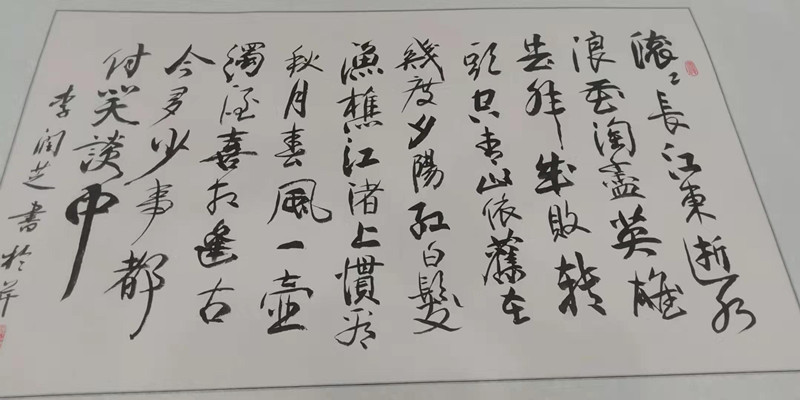 滚々長江東逝水
浪花淘盡英雄
是非成敗轉
頭空青山依舊在
幾度夕陽紅白髮
漁樵江渚上慣看
秋月春風一壺
濁酒喜相逢古
今多少事都
付笑談中
李润芝書於并